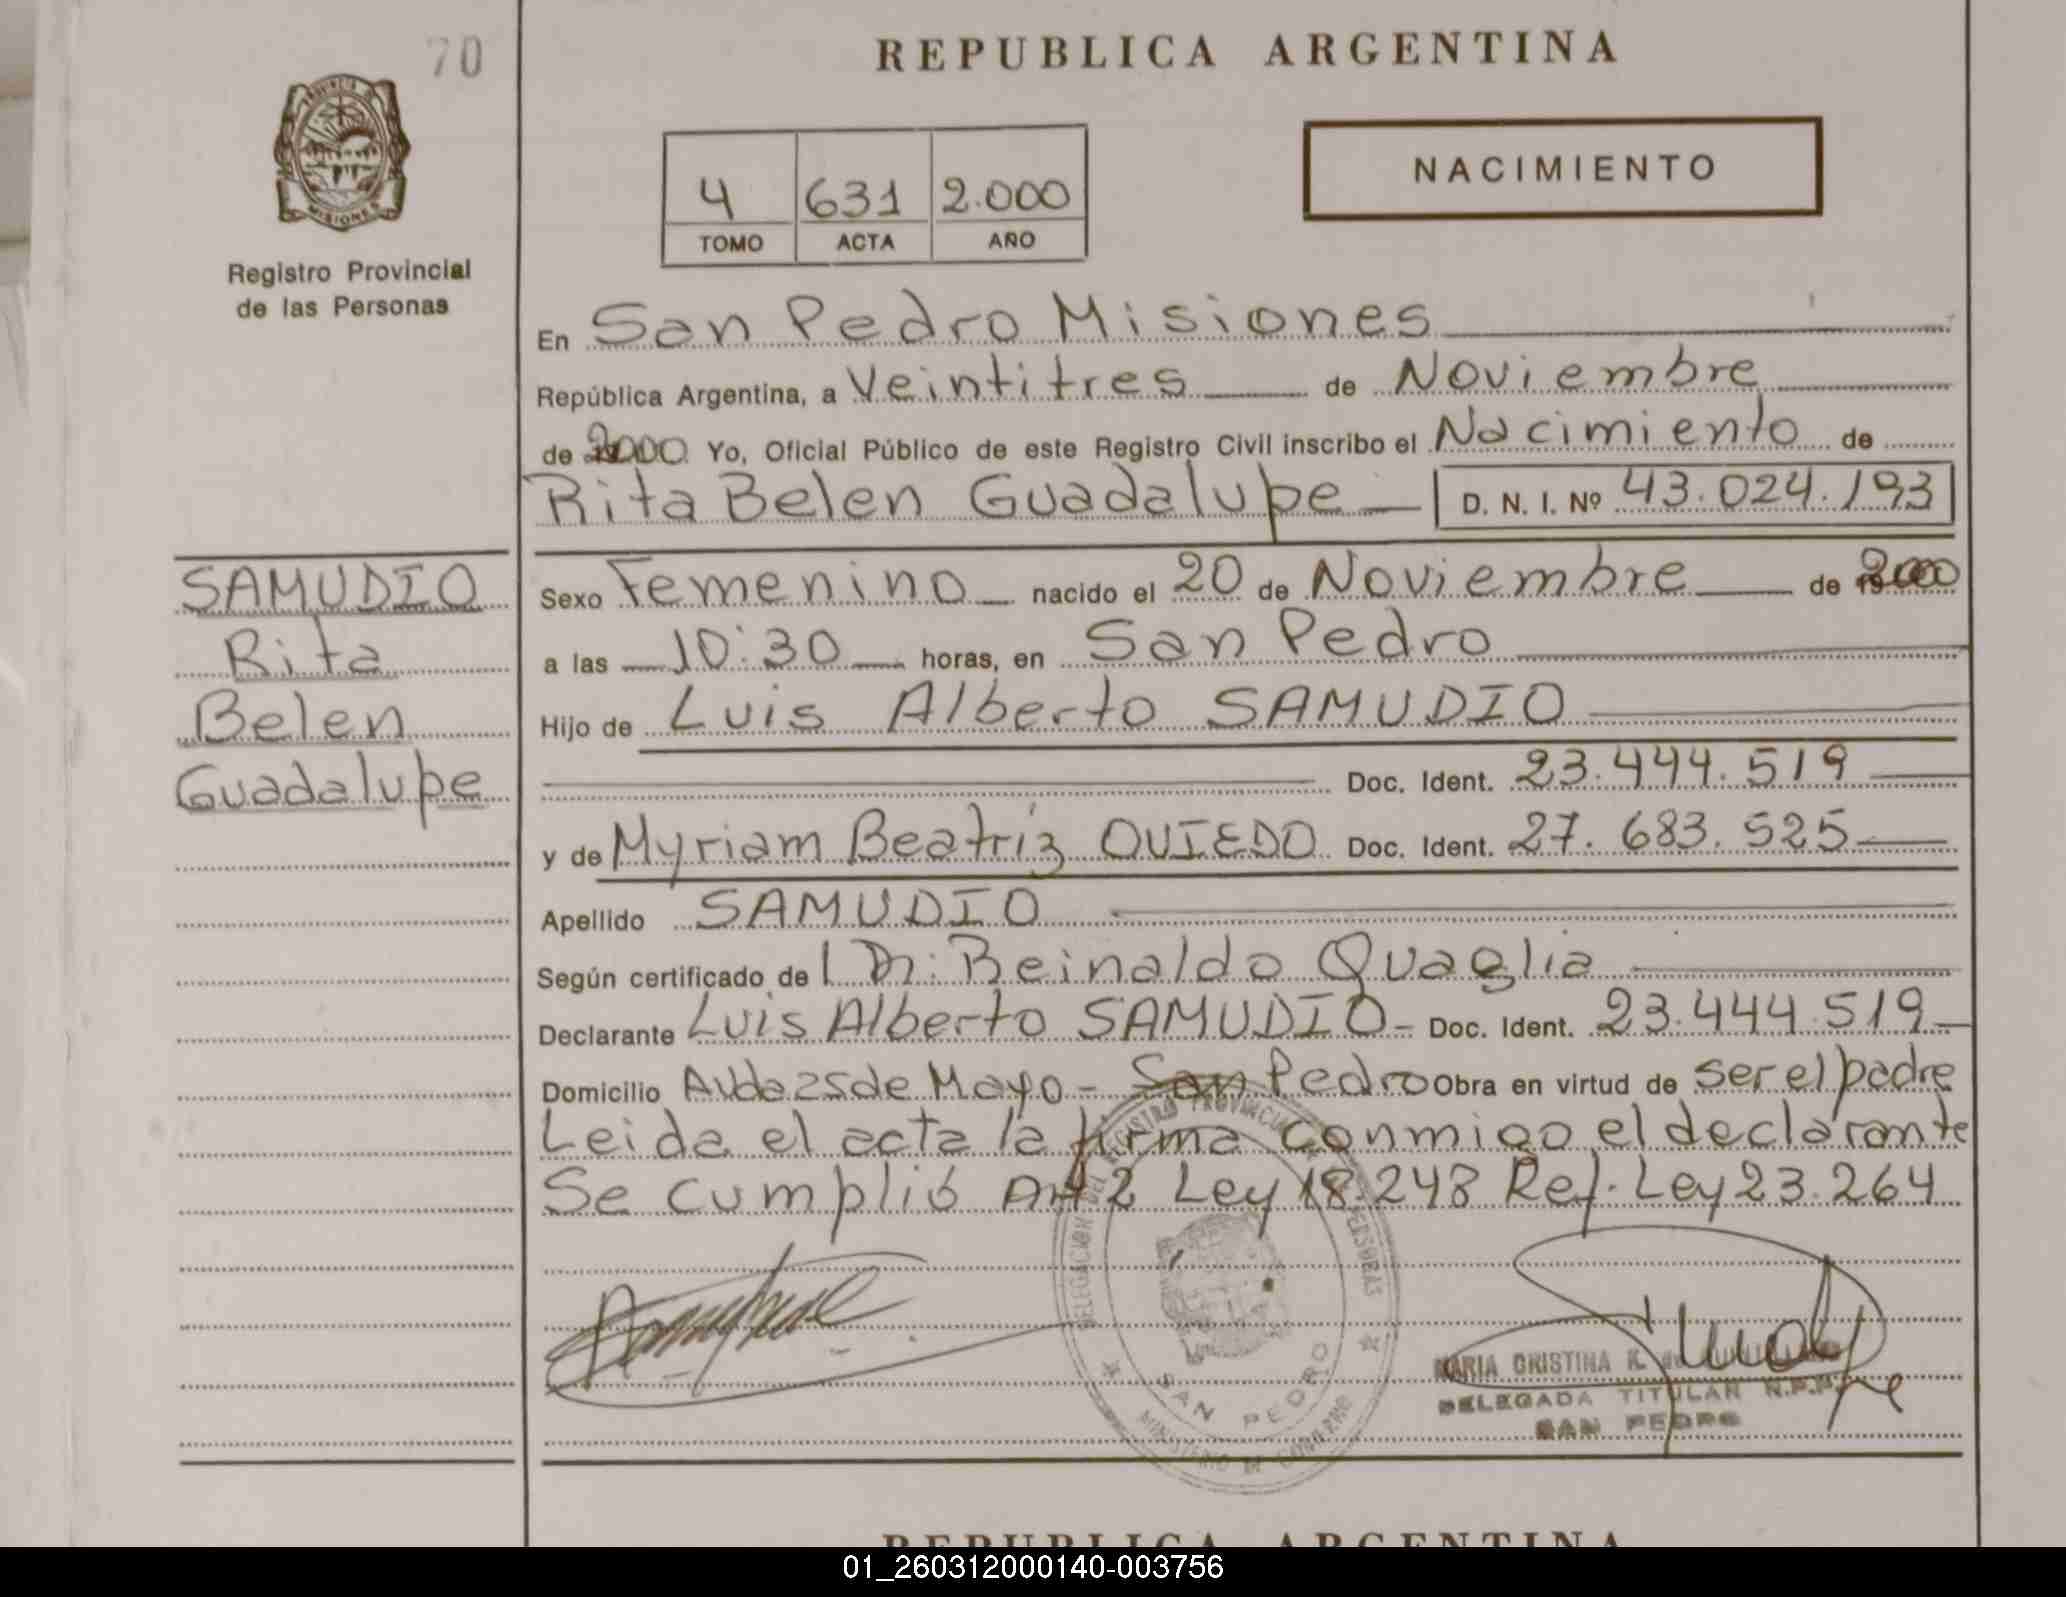 70
REPUBLICA ARGENTINA
PROVINCIA DE
MISIONES
Registro Provincial
de las Personas
4 631 2.000
TOMO ACTA AÑO
NACIMIENTO
En San Pedro Misiones
República Argentina, a Veintitres de Noviembre
de 2000 Yo, Oficial Público de este Registro Civil inscribo el Nacimiento de
Rita Belen Guadalupe D. N. I. Nº 43.024.193
SAMUDIO
Rita
Belen
Guadalupe
Sexo Femenino nacido el 20 de Noviembre de 2000
a las 10:30 horas, en San Pedro
Hijo de Luis Alberto SAMUDIO
Doc. Ident. 23.444.519
y de Myriam Beatriz OVIEDO Doc. Ident. 27.683.525
Apellido SAMUDIO
Según certificado de Dr: Reinaldo Quaglia
Declarante Luis Alberto SAMUDIO - Doc. Ident. 23.444.519
Domicilio Avda 25 de Mayo - San Pedro Obra en virtud de ser el padre
Leida el acta la firma conmigo el declarante
Se cumplió Art 2 Ley 18.248 Ref. Ley 23.264
DELEGACION DEL REGISTRO PROVINCIAL PERSONAS
SAN PEDRO
MINISTERIO DE GOBIERNO
MARIA CRISTINA K. de
DELEGADA TITULAR R.P.P.
SAN PEDRO
REPUBLICA ARGENTINA
01_260312000140-003756